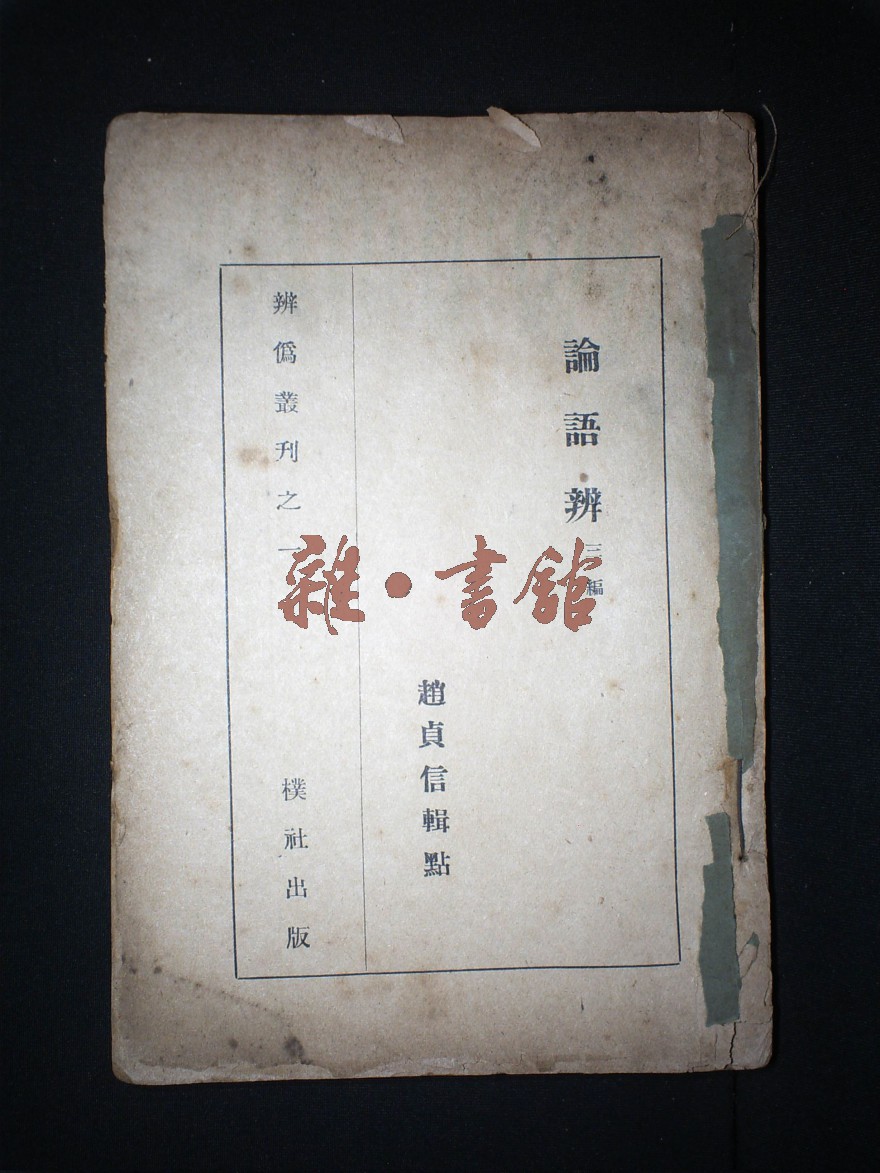 論語辨 三編
趙貞信輯點
辨僞叢刊之一
樸社出版
雜·書館